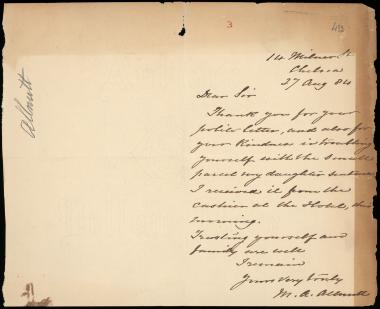 3
14 Milner St
Chelsea
27 Aug 84
Dear Sir
Thank you for your
polite letter, and also for
your kindness in troubling
yourself with the small
parcel my daughter sent me
I received it from the
cashier at the Hotel, this
morning.
Trusting yourself and
family are well
I remain
Yours very truly
M. A. Allnutt
Allnutt